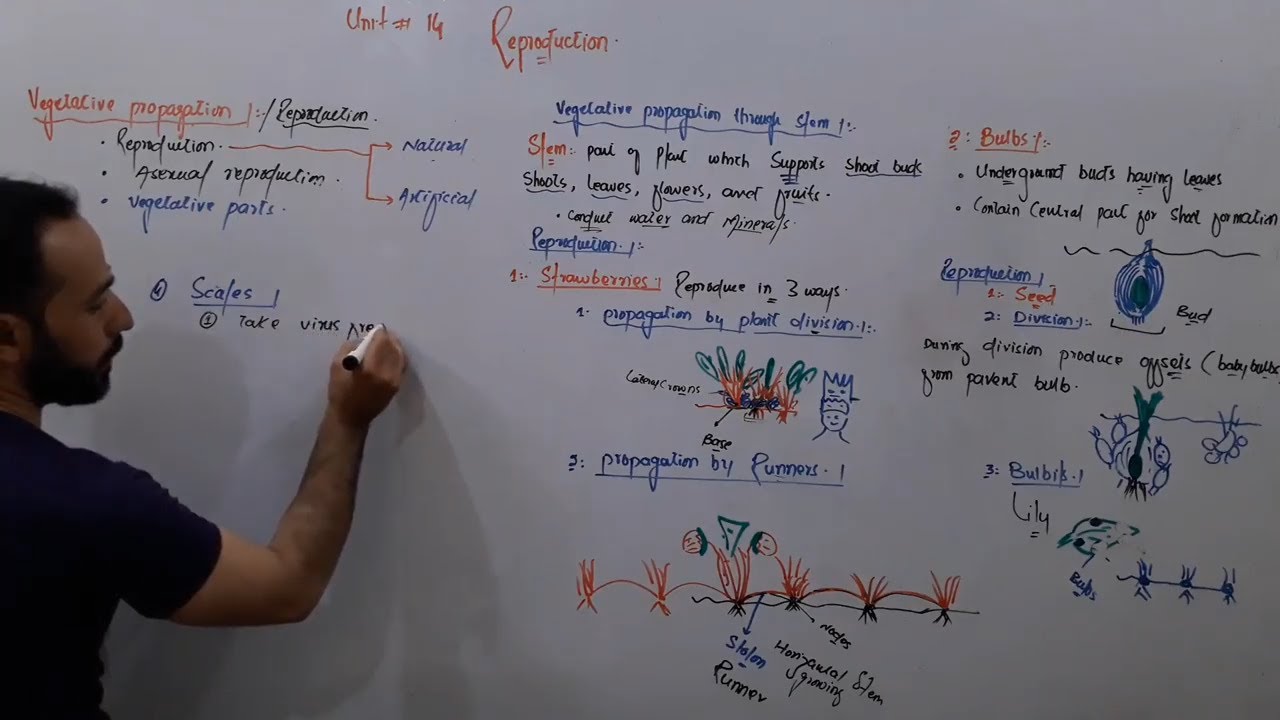 Unit # 14 Reproduction.
Vegetative propagation :- / Reproduction.
• Reproduction.
• Asexual reproduction.
• Vegetative parts.
Natural
Artificial
④ Scales :
① Take virus pre
Vegetative propagation through stem :-
Stem:- part of plant which supports shoot buds
Shoots, leaves, flowers, and fruits.
• Conduct water and Minerals.
Reproduction :-
1:- Strawberries : Reproduce in 3 ways.
1. propagation by plant division :-
Lateral crowns
Base
2: propagation by Runners. :
Nodes
Stolon
Runner
Horizontal Stem
growing
2: Bulbs :-
• Underground buds having leaves
• Contain Central part for shoot formation
Reproduction :
1:- Seed
2: Division :-
Bud
During division produce offsets (baby bulbs
from parent bulb.
3: Bulbils :
Lily
Bulbs